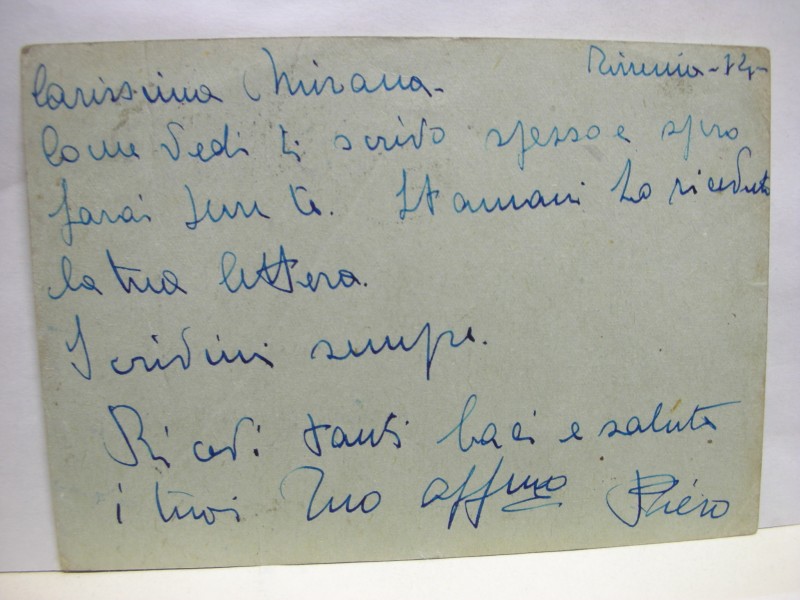 Tirrenia - 14 -
Carissima Mirana -
Come vedi ti scrivo spesso e spero
farai pure te. Stamani ho ricevuto
la tua lettera.
Scrivimi sempre.
Ricevi tanti baci e saluta
i tuoi Tuo affmo Piero